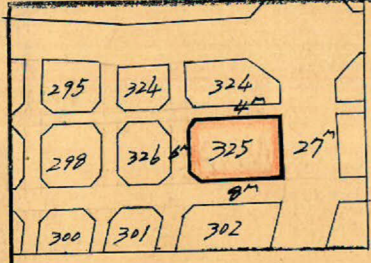 295 324 324
4m
298 326 6m 325 27m
8m
300 301 302